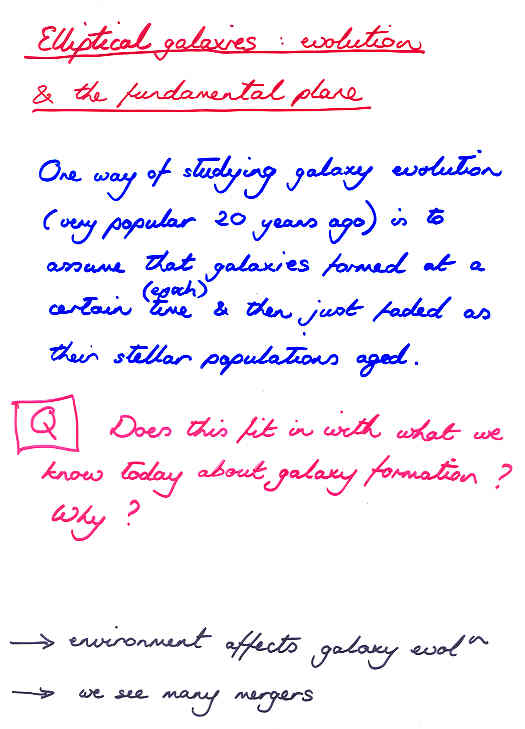 Elliptical galaxies : evolution
& the fundamental plane
One way of studying galaxy evolution
(very popular 20 years ago) is to
assume that galaxies formed at a
(epoch)
certain time & then just faded as
their stellar populations aged.
Q Does this fit in with what we
know today about galaxy formation ?
Why ?
→ environment affects galaxy evolⁿ
→ we see many mergers